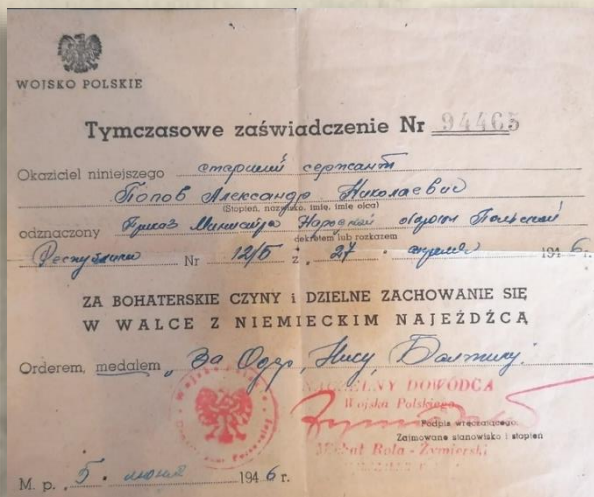 WOJSKO POLSKIE
Tymczasowe zaświadczenie Nr 94465
Okaziciel niniejszego старший сержант
Попов Александр Николаевич
(Stopień, nazwisko, imię, imię ojca)
odznaczony Приказ Министра Народной обороны Польской
dekretem lub rozkazem
Республики Nr 12/5 z . 27 . апреля 1946 г.
ZA BOHATERSKIE CZYNY i DZIELNE ZACHOWANIE SIĘ
W WALCE Z NIEMIECKIM NAJEŹDŹCĄ
Orderem, medalem „За Одер, Нису, Балтику."
NACZELNY DOWÓDCA
Wojska Polskiego
Podpis wręczającego.
Zajmowane stanowisko i stopień
Michał Rola-Żymierski
M. p. „5. июня 1946 r.